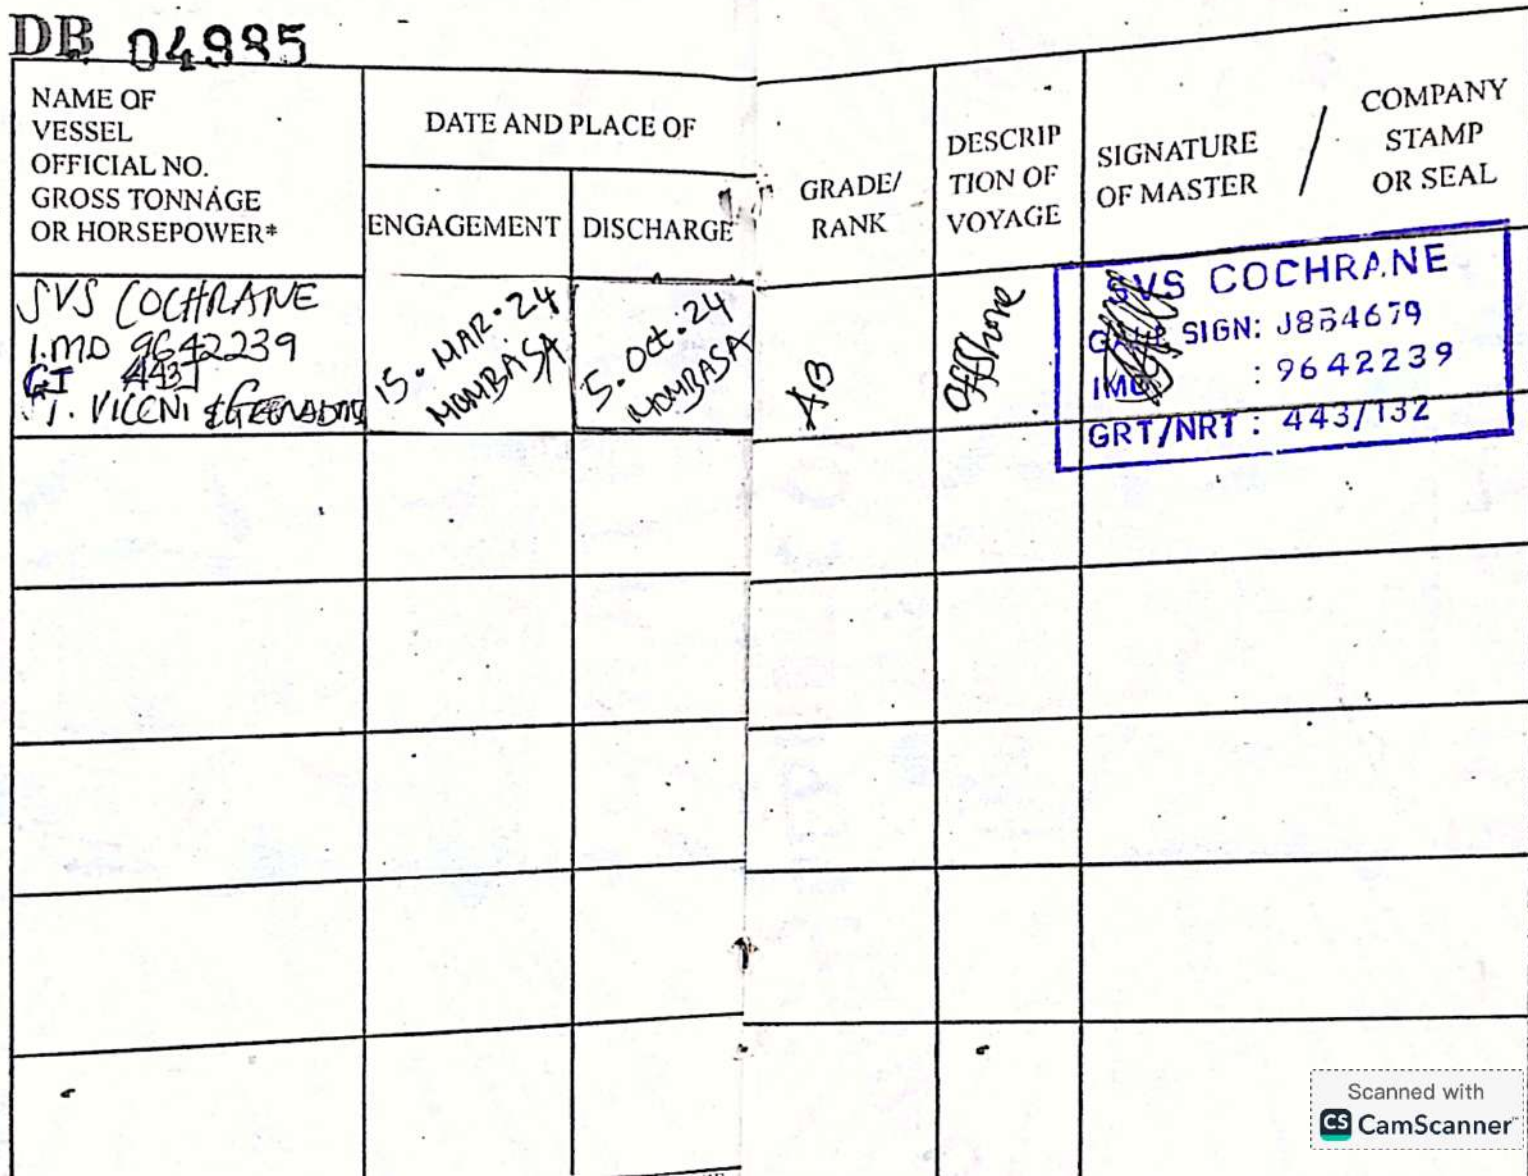 DB 04995
NAME OF
VESSEL
OFFICIAL NO.
GROSS TONNAGE
OR HORSEPOWER*
DATE AND PLACE OF
ENGAGEMENT
DISCHARGE
GRADE/
RANK
DESCRIP
TION OF
VOYAGE
SIGNATURE
OF MASTER
/
COMPANY
STAMP
OR SEAL
SVS COCHRANE
I.MO 9642239
GT 443
15. MAR. 24
MOMBASA
5. Oct. 24
MOMBASA
AB
Offshore
SVS COCHRANE
SIGN: J8B4679
IMO : 9642239
GRT/NRT : 443/132
Scanned with
CS CamScanner